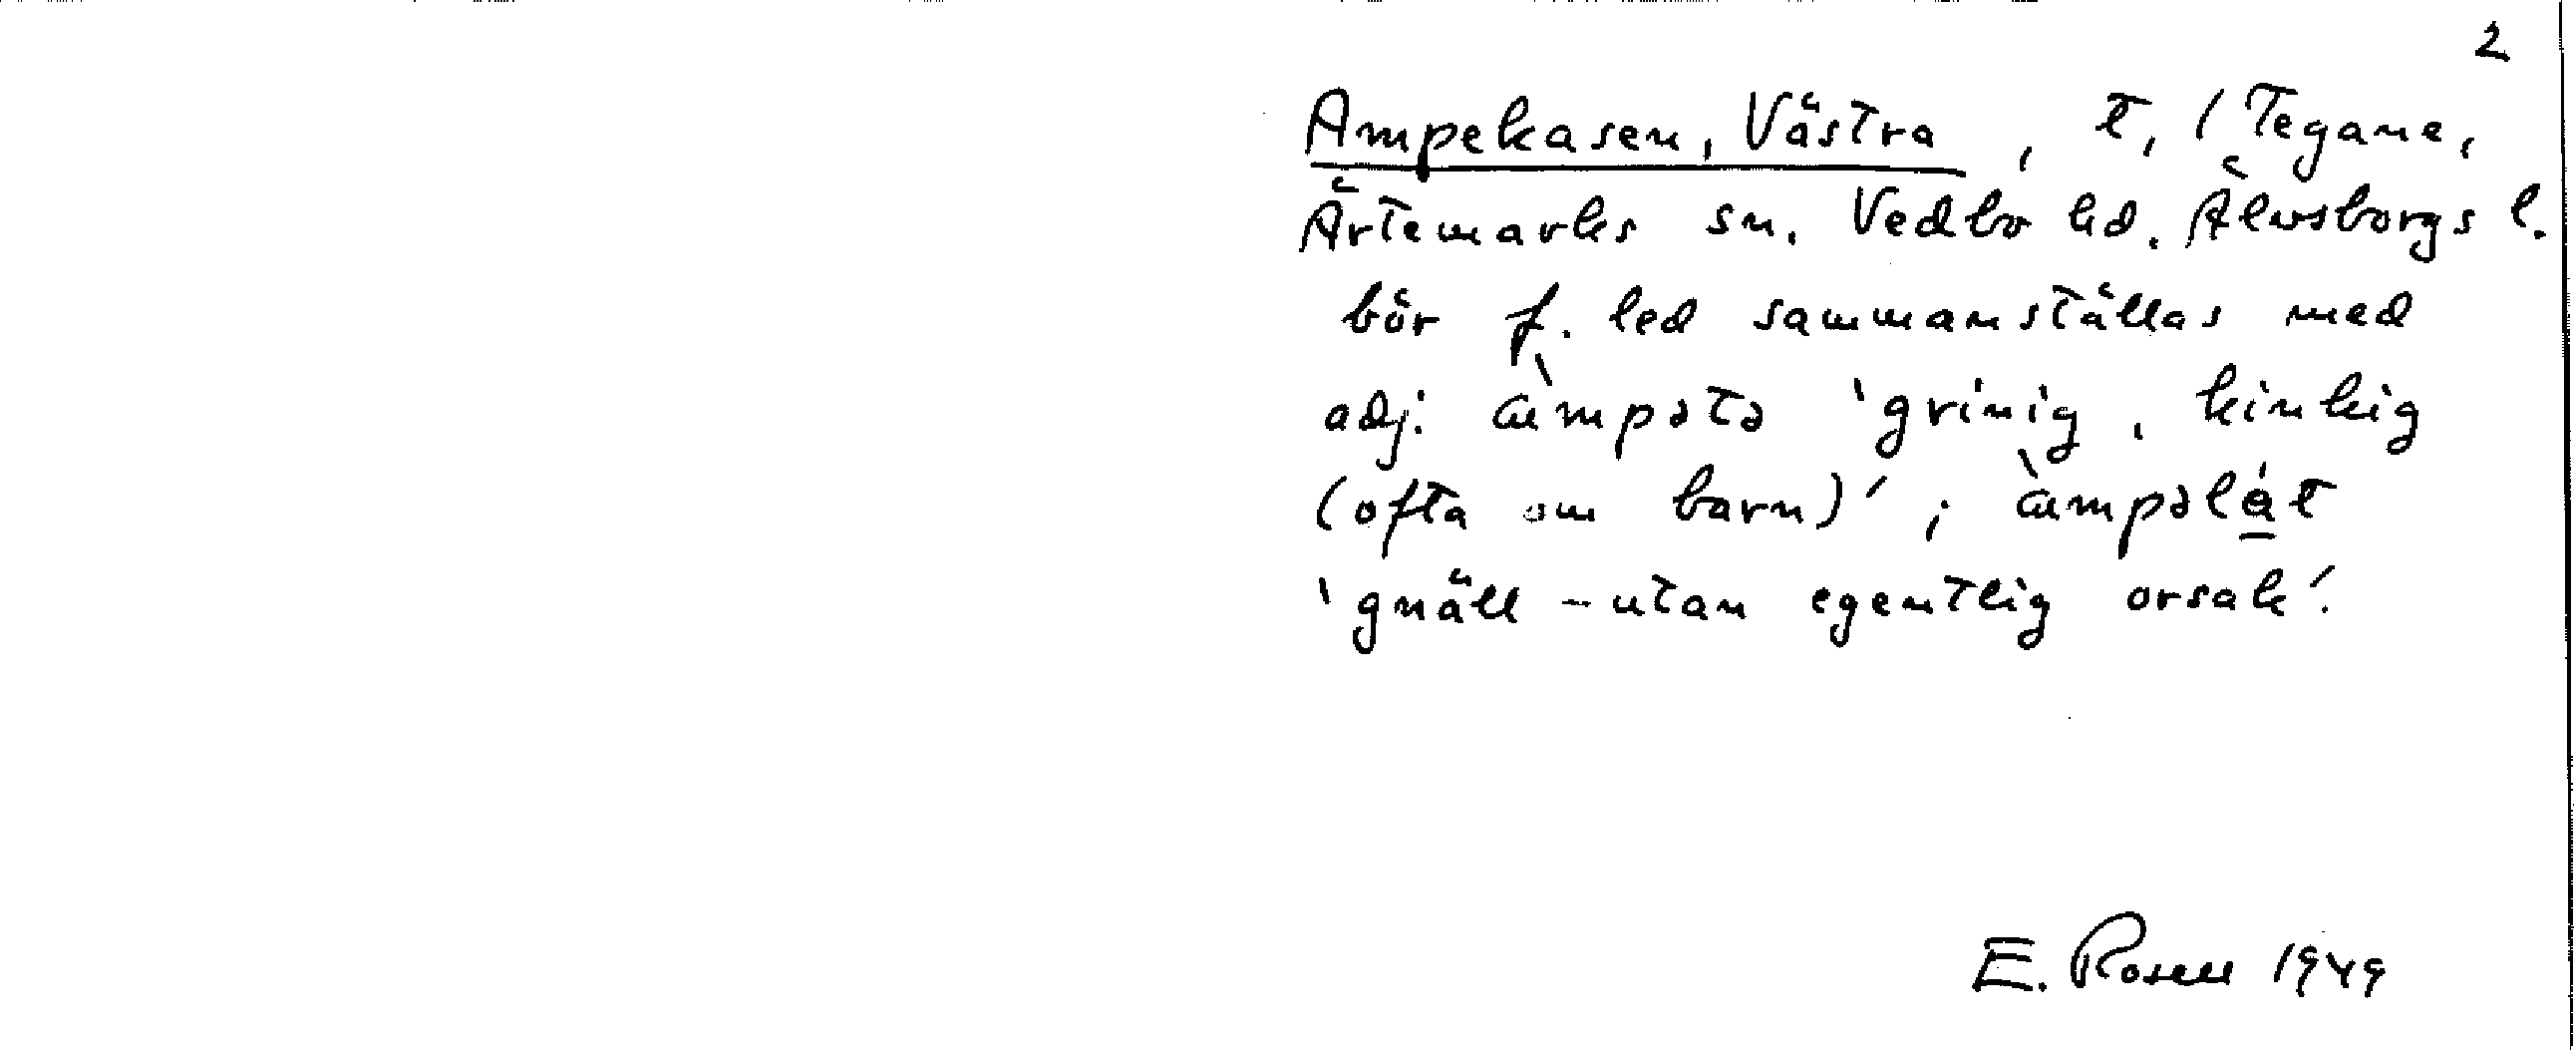 2
Ampekasen, Västra, t, (Tegane,
Ärtemarks sn. Vedbo hd. Älvsborgs l.
bör f. led sammanställas med
adj. àmpətə 'grinig, kinkig
(ofta om barn)'; àmpəlá̲t
'gnäll – utan egentlig orsak'.
E. Rosell 1949